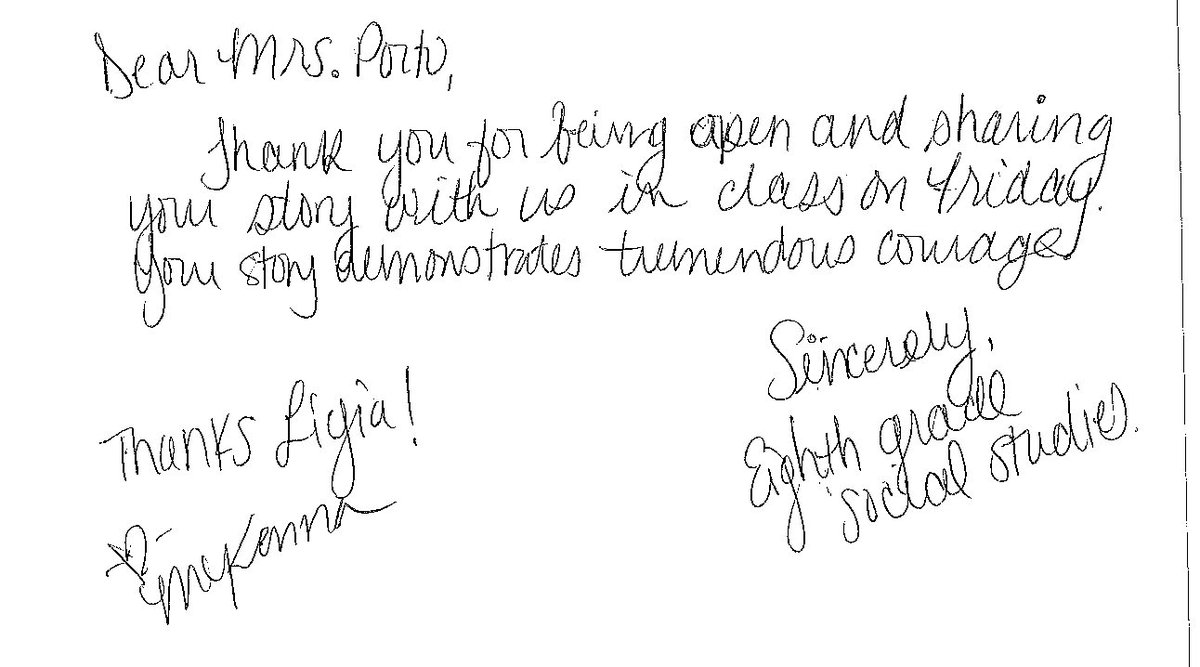 Dear Mrs. Porto,
Thank you for being open and sharing
your story with us in class on Friday.
Your story demonstrates tremendous courage.
Sincerely,
Eighth grade
social studies.
Thanks Ligia!
McKenna